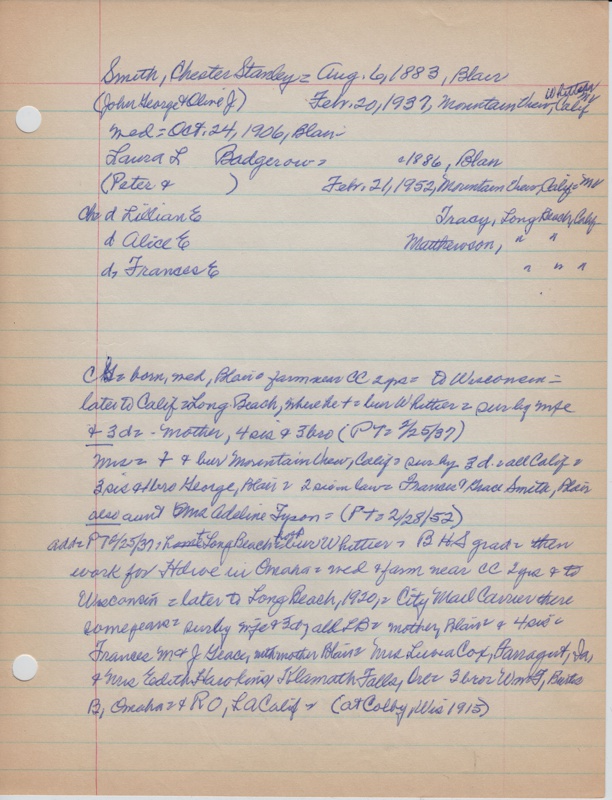 Smith, Chester Stanley = Aug. 6, 1883, Blair
Whittier
(John George & Olive J) Febr. 20, 1937, Mountain View, Calif MV
med = Oct. 24, 1906, Blair
Laura L Badgerow = c1886, Blair
(Peter & ) Febr. 21, 1952, Mountain View, Calif = MV
ch d Lillian E Tracy, Long Beach, Calif
d Alice E Matthewson, " "
d, Frances E " " "
CS = born, med, Blair = farm near CC 2 yrs = to Wisconsin =
later to Calif = Long Beach, where he + = bur Whittier = sur by wife
& 3 d = - mother, 4 sis & 3 bro (PT = 2/25/37)
Mrs = + & bur Mountain View, Calif = sur by 3 d. = all Calif =
3 sis & bro George, Blair = 2 sis in law = Frances & Grace Smith, Blair
also aunt Mrs Adeline Tyson = (PT = 2/28/52)
add = PT 2/25/37, Long Beach but bur Whittier = BHS grad = then
work for in Omaha = med & farm near CC 2 yrs & to
Wisconsin = later to Long Beach, 1920, = City Mail Carrier there
some years = sur by wife & 3 d, all LB = mother, Blair & 4 sis =
Frances M & J Grace, with mother Blair = Mrs Luna Cox, Farragut, Ia,
& Mrs Edith Hawkins Klamath Falls, Ore = 3 bro = Wm T, Bertis
B, Omaha = & RO, LA Calif = (at Colby, Wis 1915)